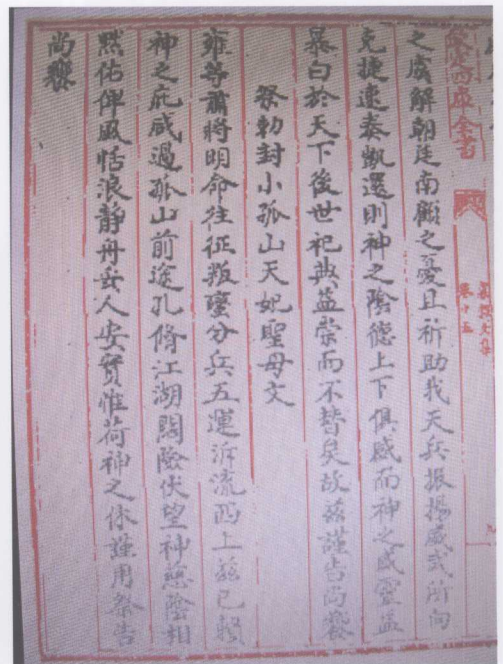 欽定四庫全書
襄毅文集
卷十五
之虞解朝廷南顧之憂且祈助我天兵振揚威武所向
克捷速奏凱還則神之陰德上下俱感而神之威靈益
暴白於天下後世祀典益崇而不替矣故兹謹告尚饗
祭勅封小孤山天妃聖母文
雍等肅將明命往征叛蠻分兵五運泝流西上兹已賴
神之庇咸過孤山前途孔脩江湖闊險伏望神慈陰相
黙佑俾風恬浪靜舟人安實惟荷神之休謹用祭告
尚饗